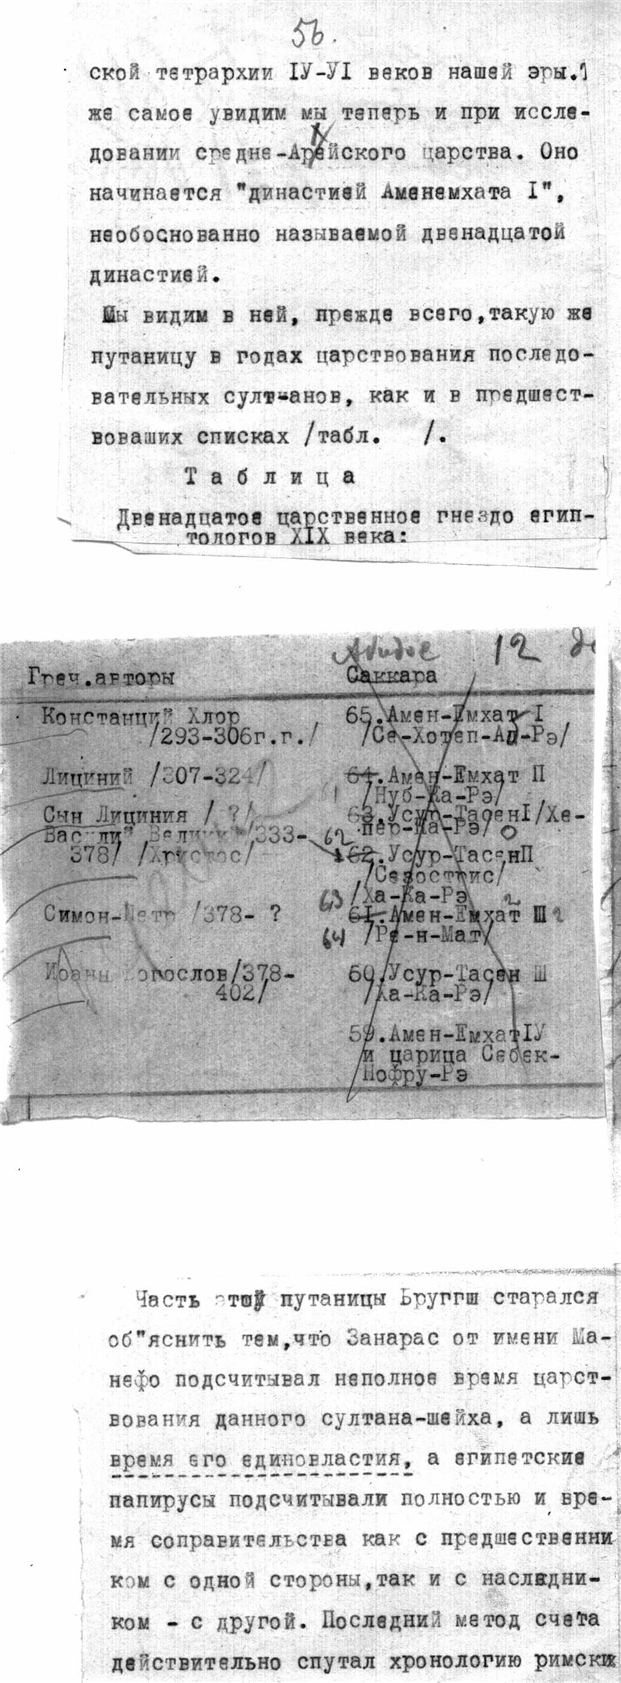 56.
ской тетрархии IУ-УI веков нашей эры.
же самое увидим мы теперь и при иссле-
довании средне-Арийского царства. Оно
начинается "династией Аменемхата I",
необоснованно называемой двенадцатой
династией.
Мы видим в ней, прежде всего,такую же
путаницу в годах царствования последо-
вательных султанов, как и в предшест-
вовавших списках /табл. /.
Таблица
Двенадцатое царственное гнездо египтологов
тологов XIX века:
Абидос 12
Греч.авторы Саккара
Констанций Хлор 65.Амен-Емхат I
/293-306г.г./ /Се-Хотеп-Аб-Рэ/
Лициний /307-324/ 64.Амен-Емхат П
61 /Нуб-Ка-Рэ/
Сын Лициния / ?/ 63.Усур-ТасенI/Хе-
Василий Великий/333- 62 пер-Ка-Рэ/
378/ /Христос/ 62.Усур-ТасенП
/Сезострис/
63 /Ха-Ка-Рэ
Симон-Петр /378- ? 61.Амен-Емхат Ш
64 /Рэ-н-Мат/
Иоанн Богослов/378- 60.Усур-Тасен Ш
402/ /Ха-Ка-Рэ/
59.Амен-ЕмхатIУ
и царица Себек-
Нофру-Рэ
Часть этой путаницы Бруггш старался
об"яснить тем,что Занарас от имени Ма-
нефо подсчитывал неполное время царст-
вования данного султана-шейха, а лишь
время его единовластия, а египетские
папирусы подсчитывали полностью и вре-
мя соправительства как с предшественни
ком с одной стороны,так и с наследни-
ком - с другой. Последний метод счета
действительно спутал хронологию римских